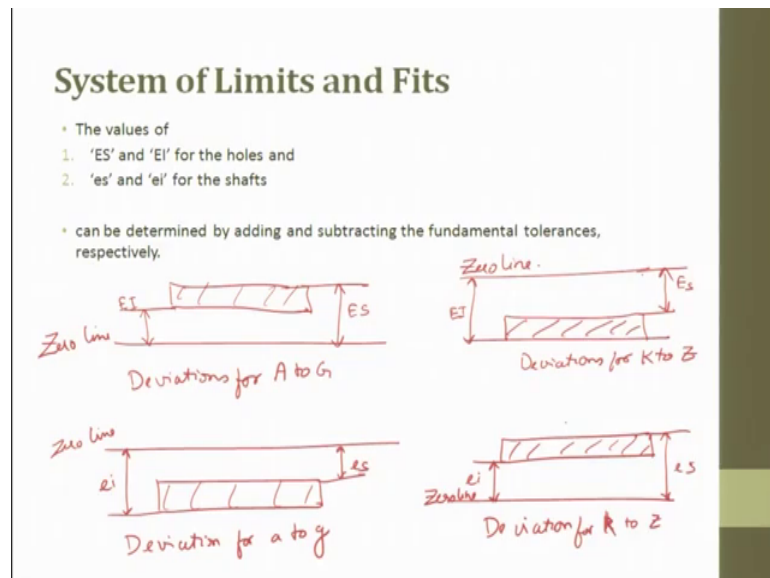 System of Limits and Fits
• The values of
1. 'ES' and 'EI' for the holes and
2. 'es' and 'ei' for the shafts
• can be determined by adding and subtracting the fundamental tolerances,
respectively.
EI
ES
Zero line
Deviations for A to G
Zero Line.
EI
Es
Deviations for K to Z
Zero line
ei
es
Deviation for a to g
ei
es
Zero line
Deviation for k to z